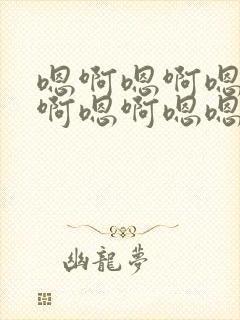 嗯啊嗯啊嗯
啊嗯啊嗯嗯
幽龍夢